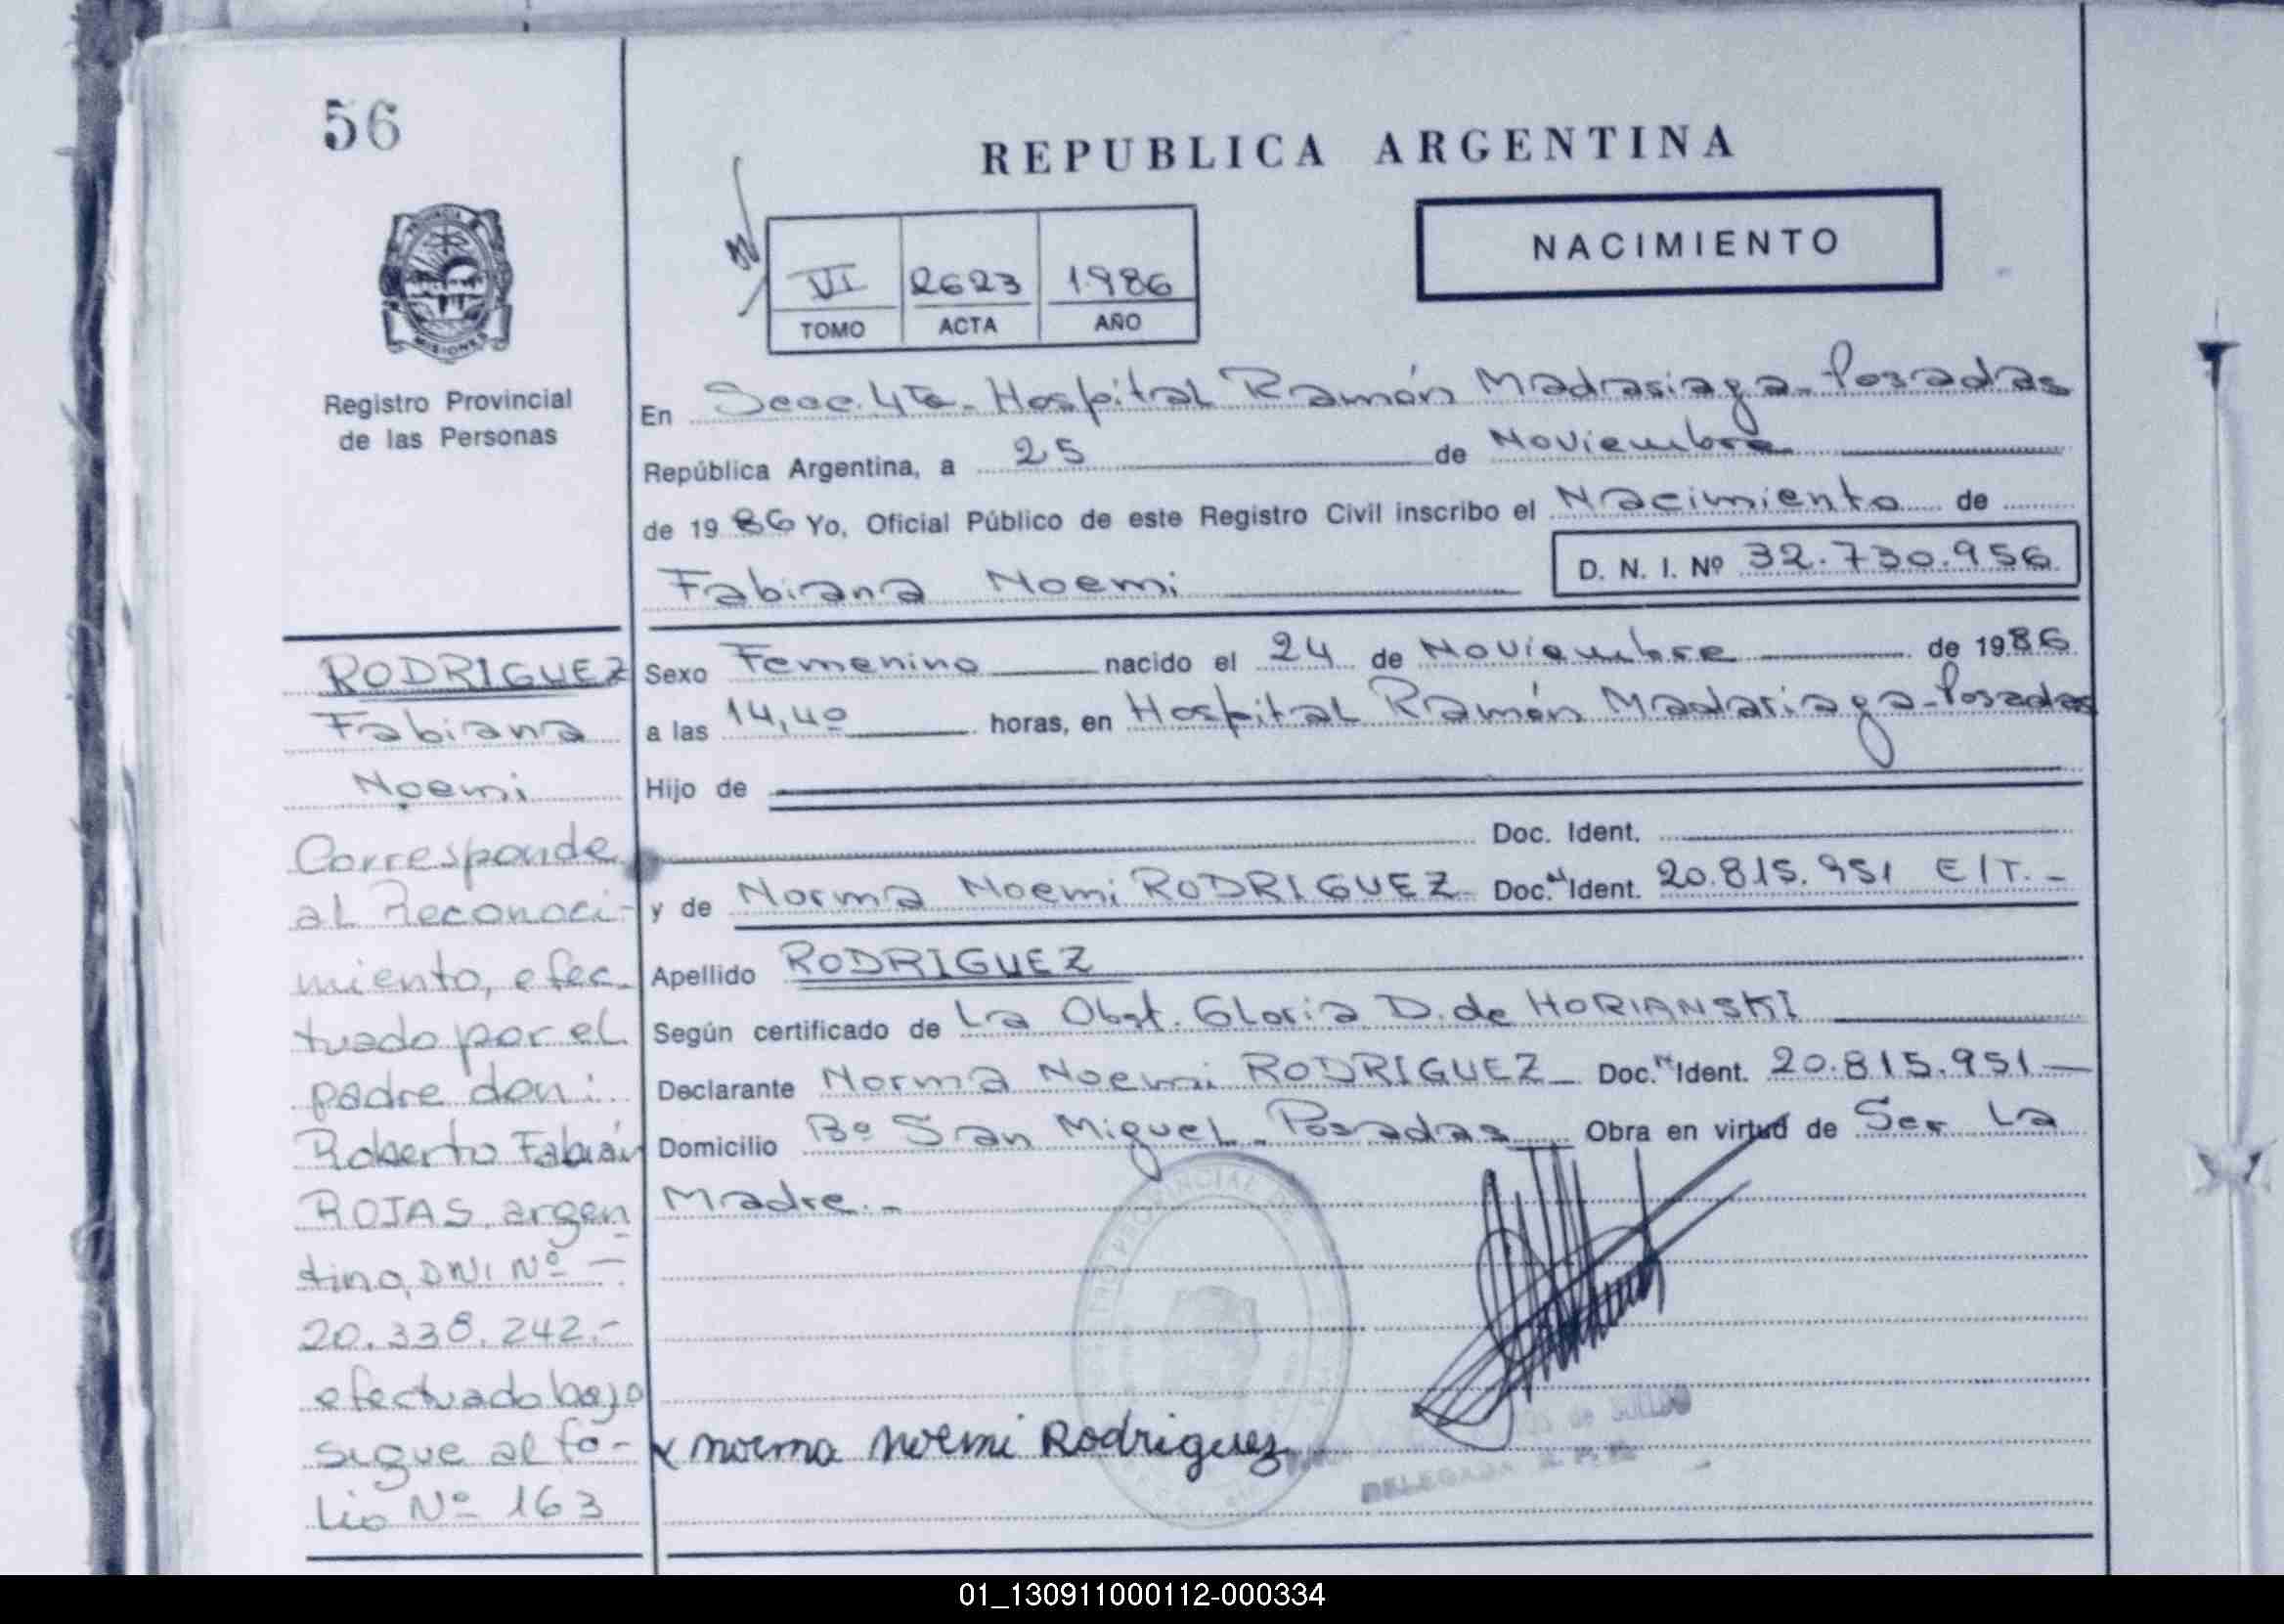 56
REPUBLICA ARGENTINA
NACIMIENTO
VI 2623 1986
TOMO ACTA AÑO
PROVINCIA
MISIONES
Registro Provincial
de las Personas
En Secc. 4ta - Hospital Ramón Madariaga - Posadas
República Argentina, a 25 de Noviembre
de 1986 Yo, Oficial Público de este Registro Civil inscribo el Nacimiento de
Fabiana Noemi D. N. I. Nº 32.730.956
Sexo Femenino nacido el 24 de Noviembre de 1986
a las 14,40 horas, en Hospital Ramón Madariaga - Posadas
Hijo de
Doc. Ident.
y de Norma Noemi RODRIGUEZ Doc. Nº Ident. 20.815.951 E/T.-
Apellido RODRIGUEZ
Según certificado de La Obst. Gloria D. de HORIANSKI
Declarante Norma Noemi RODRIGUEZ - Doc. Nº Ident. 20.815.951 -
Domicilio Bº San Miguel - Posadas Obra en virtud de Ser La
Madre.-
x norma noemi Rodriguez
DELEGADA
RODRIGUEZ
Fabiana
Noemi
Corresponde
al Reconoci-
miento, efec-
tuado por el
padre don:
Roberto Fabián
ROJAS, argen
tino, DNI Nº -
20.338.242.-
efectuado bajo
sigue al fo-
lio Nº 163
01_130911000112-000334